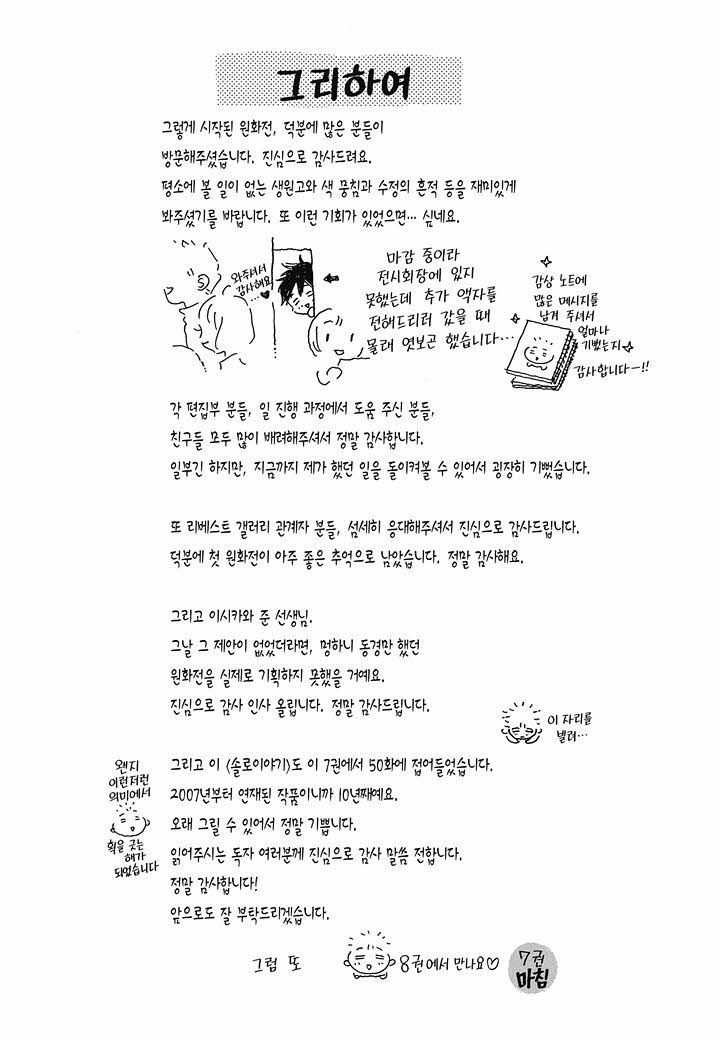 그리하여
그렇게 시작된 원화전, 덕분에 많은 분들이
방문해주셨습니다. 진심으로 감사드려요.
평소에 볼 일이 없는 생원고와 색 뭉침과 수정의 흔적 등을 재미있게
봐주셨기를 바랍니다. 또 이런 기회가 있었으면… 싶네요.
와주셔서
감사해요
…♥
마감 중이라
전시회장에 있지
못했는데 추가 액자를
전해드리러 갔을 때
몰래 엿보곤 했습니다…
감상 노트에
많은 메시지를
남겨 주셔서
얼마나
기뻤는지
감사합니다―!!
각 편집부 분들, 일 진행 과정에서 도움 주신 분들,
친구들 모두 많이 배려해주셔서 정말 감사합니다.
일부긴 하지만, 지금까지 제가 했던 일을 돌이켜볼 수 있어서 굉장히 기뻤습니다.
또 리베스트 갤러리 관계자 분들, 섬세히 응대해주셔서 진심으로 감사드립니다.
덕분에 첫 원화전이 아주 좋은 추억으로 남았습니다. 정말 감사해요.
그리고 이시카와 준 선생님.
그날 그 제안이 없었더라면, 멍하니 동경만 했던
원화전을 실제로 기획하지 못했을 거예요.
진심으로 감사 인사 올립니다. 정말 감사드립니다.
이 자리를
빌려…
그리고 이 〈솔로이야기〉도 이 7권에서 50화에 접어들었습니다.
2007년부터 연재된 작품이니까 10년째예요.
오래 그릴 수 있어서 정말 기쁩니다.
읽어주시는 독자 여러분께 진심으로 감사 말씀 전합니다.
정말 감사합니다!
앞으로도 잘 부탁드리겠습니다.
왠지
이런저런
의미에서
획을 긋는
해가
되었습니다
그럼 또
8권에서 만나요♡
7권
마침